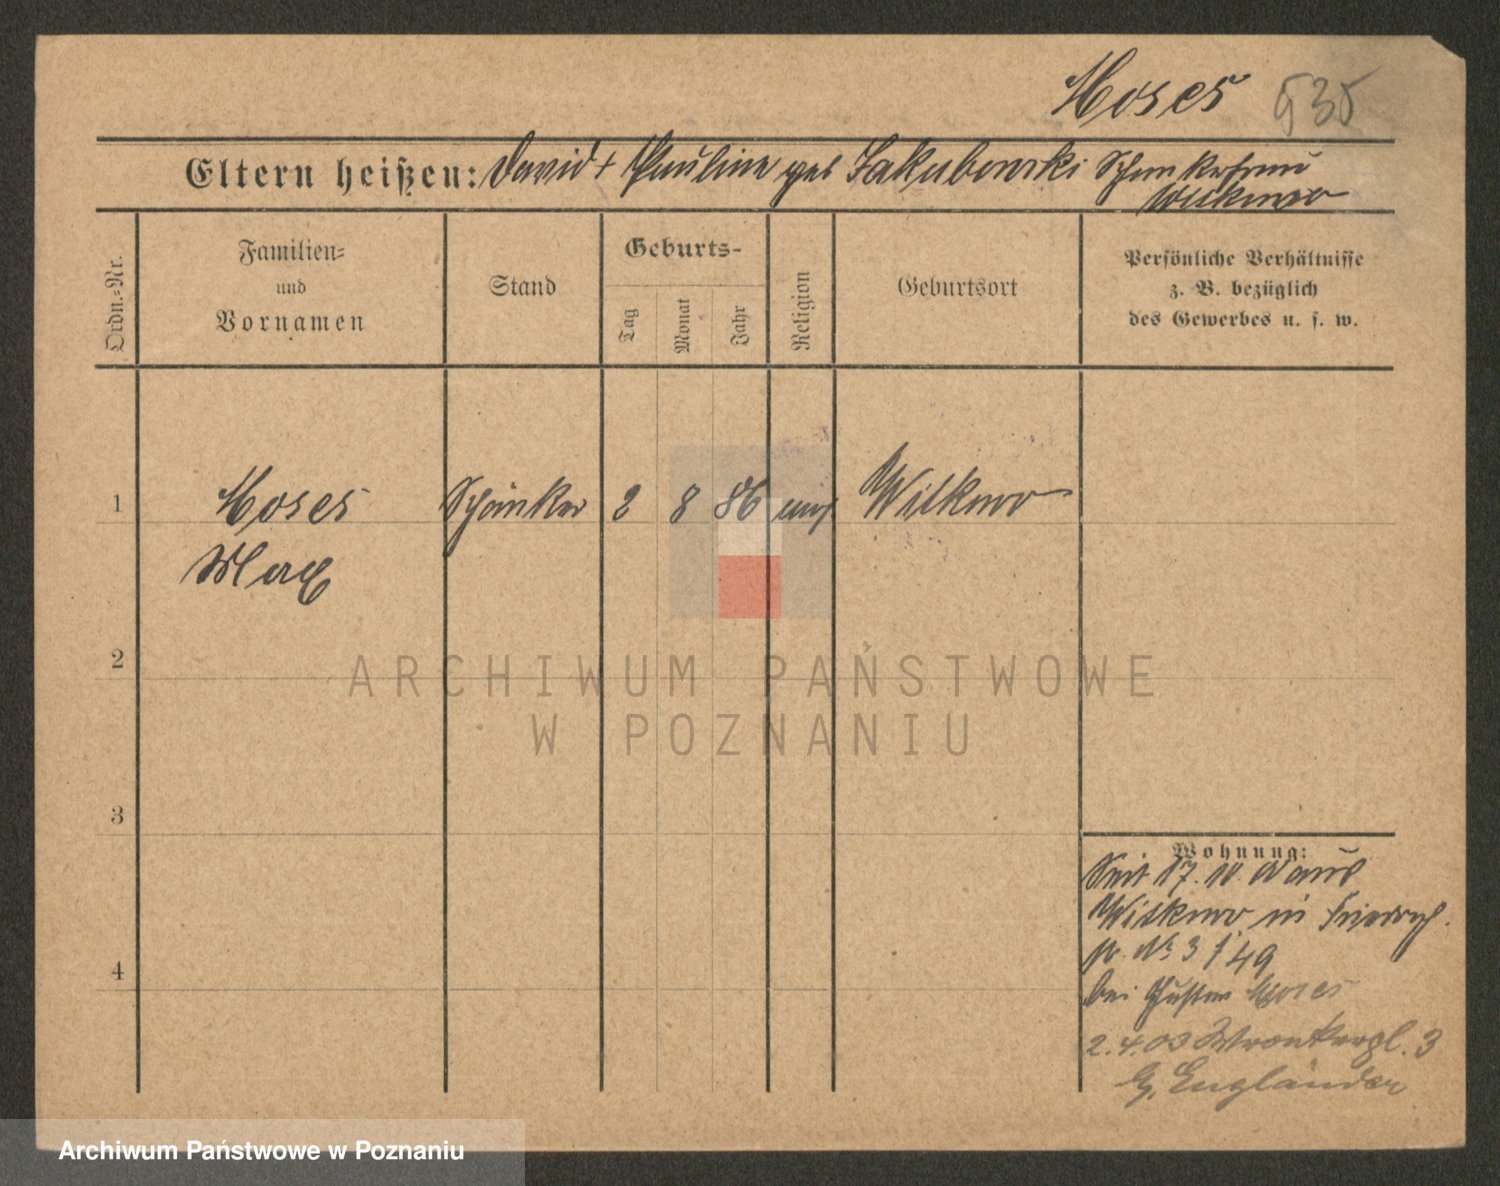 Moses 535
Eltern heißen: David + Pauline geb Jakubowski Schankerfrau
Witkowo
Ordn.-Nr.
Familien-
und
Vornamen
Stand
Geburts-
Tag
Monat
Jahr
Religion
Geburtsort
Persönliche Verhältnisse
z. B. bezüglich
des Gewerbes u. s. w.
1
Moses
Max
Schänker
2
8
86
mos
Witkowo
2
3
4
Wohnung:
Seit 17. 10. aus
Witkowo in Friedrich
str. No 3 f 49
bei Gustav Moses
2.4.03 Wronkerpl. 3
G. Engländer
ARCHIWUM PAŃSTWOWE
W POZNANIU
Archiwum Państwowe w Poznaniu